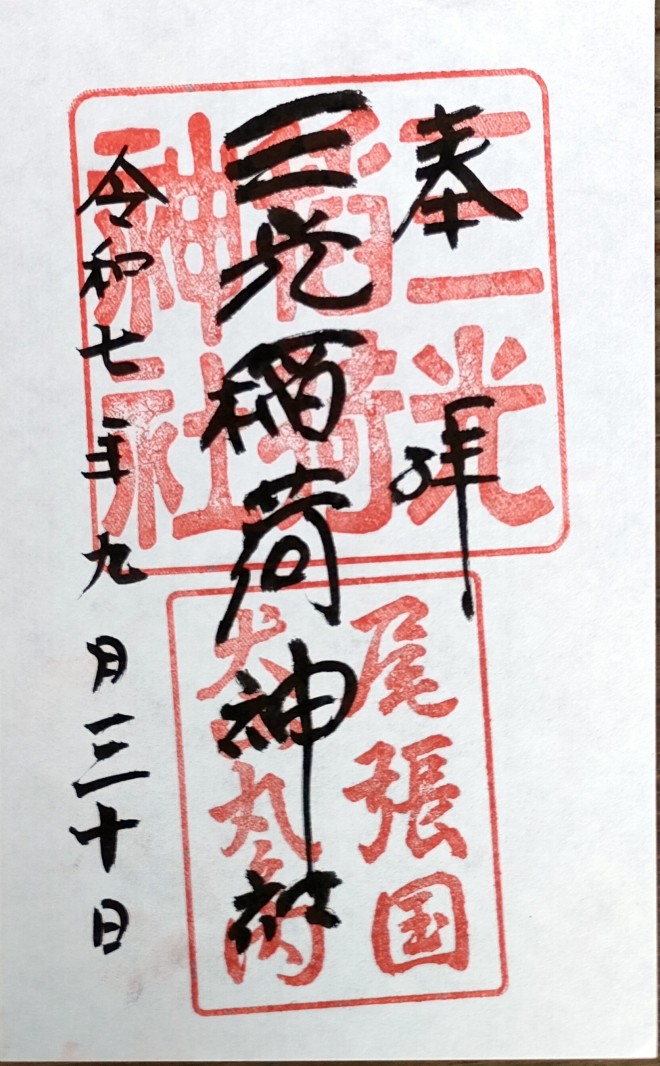 奉拝
三光稲荷神社
令和七年九月三十日
三光
稲荷
神社
尾張国
犬山丸之内